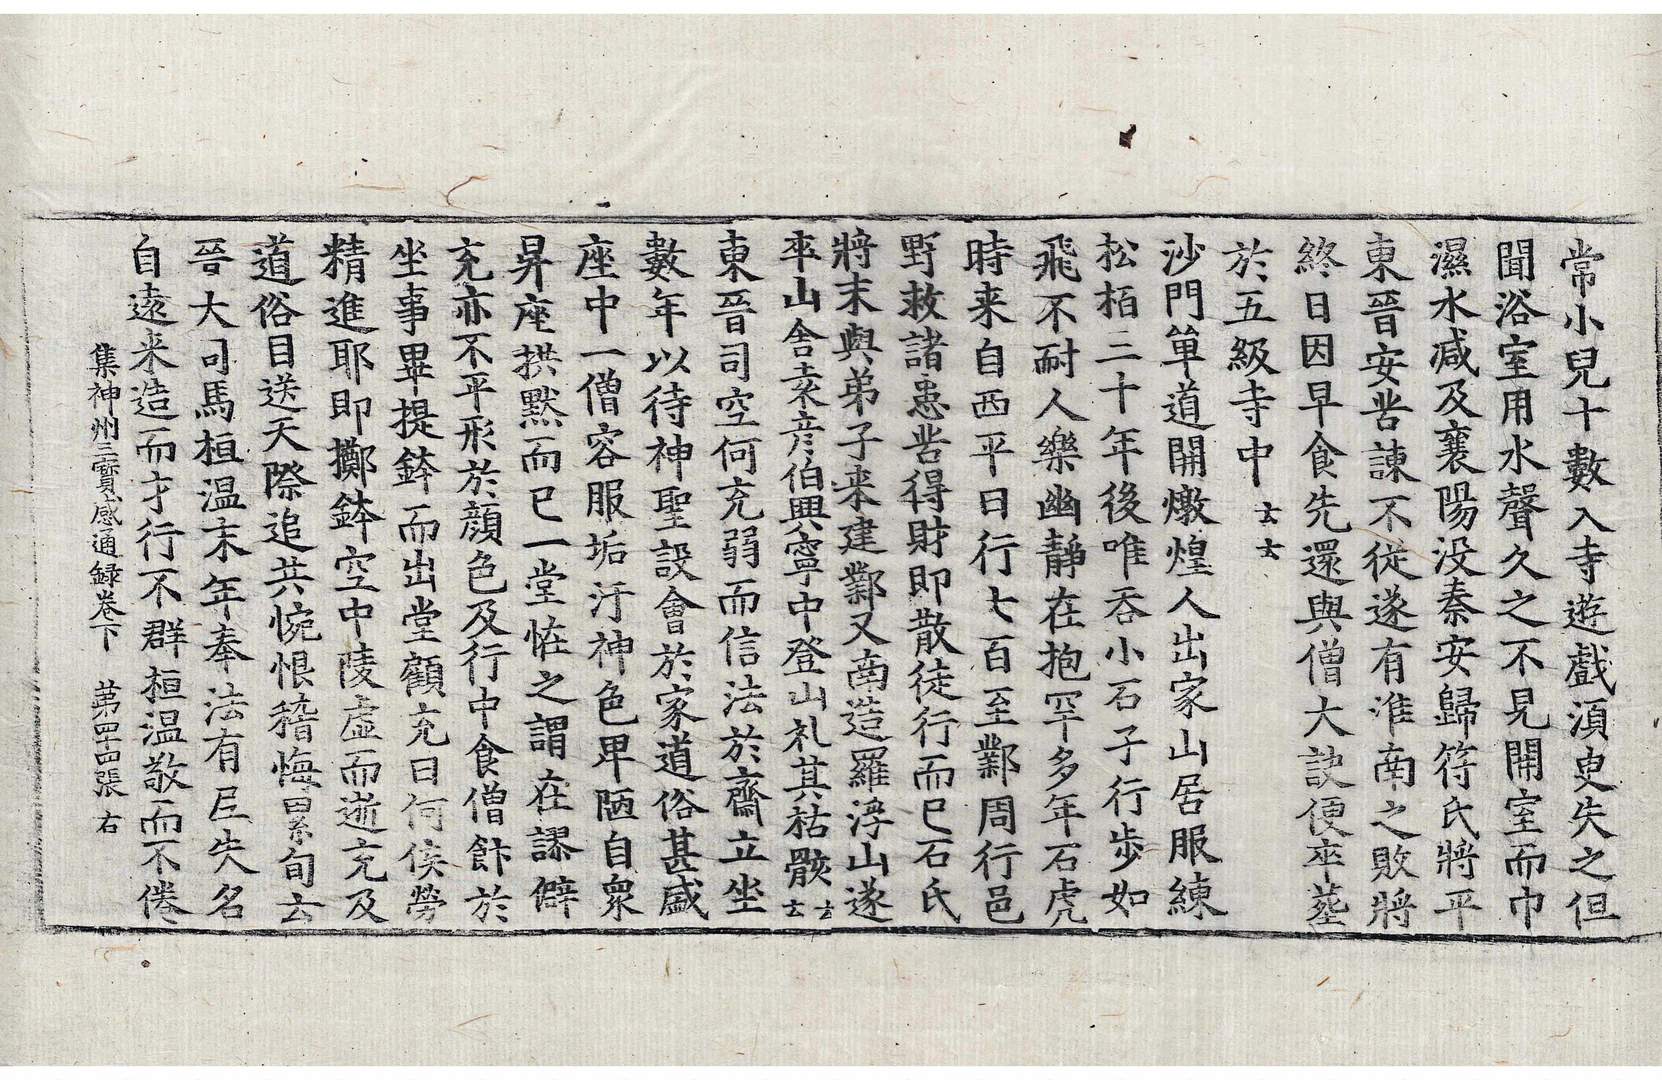 常小兒十數入寺遊戲湏臾失之但
聞浴室用水聲久之不見開室而巾
濕水减及襄陽没秦安歸符氏將平
東晉安苦諫不從遂有淮南之敗將
終日因早食先還與僧大訣便卒葬
於五級寺中云云
沙門單道開燉煌人出家山居服練
松栢三十年後唯吞小石子行步如
飛不耐人樂幽靜在抱罕多年石虎
時来自西平日行七百至鄴周行邑
野救諸患苦得財即散徒行而已石氏
將末與弟子来建鄴又南造羅浮山遂
卒山舍袁彦伯興寧中登山礼其枯骸云云
東晉司空何充弱而信法於齋立坐
數年以待神聖設會於家道俗甚盛
座中一僧容服垢汙神色卑陋自衆
昇座拱默而已一堂恠之謂在謬僻
充亦不平形於顔色及行中食僧飰於
坐事畢提鉢而出堂顧充曰何俟勞
精進耶即擲鉢空中陵虚而逝充及
道俗目送天際追共惋恨稽悔累旬云
晉大司馬桓温末年奉法有尼失名
自遠来造而才行不群桓温敬而不倦
集神州三寶感通録卷下 第四十四張 右